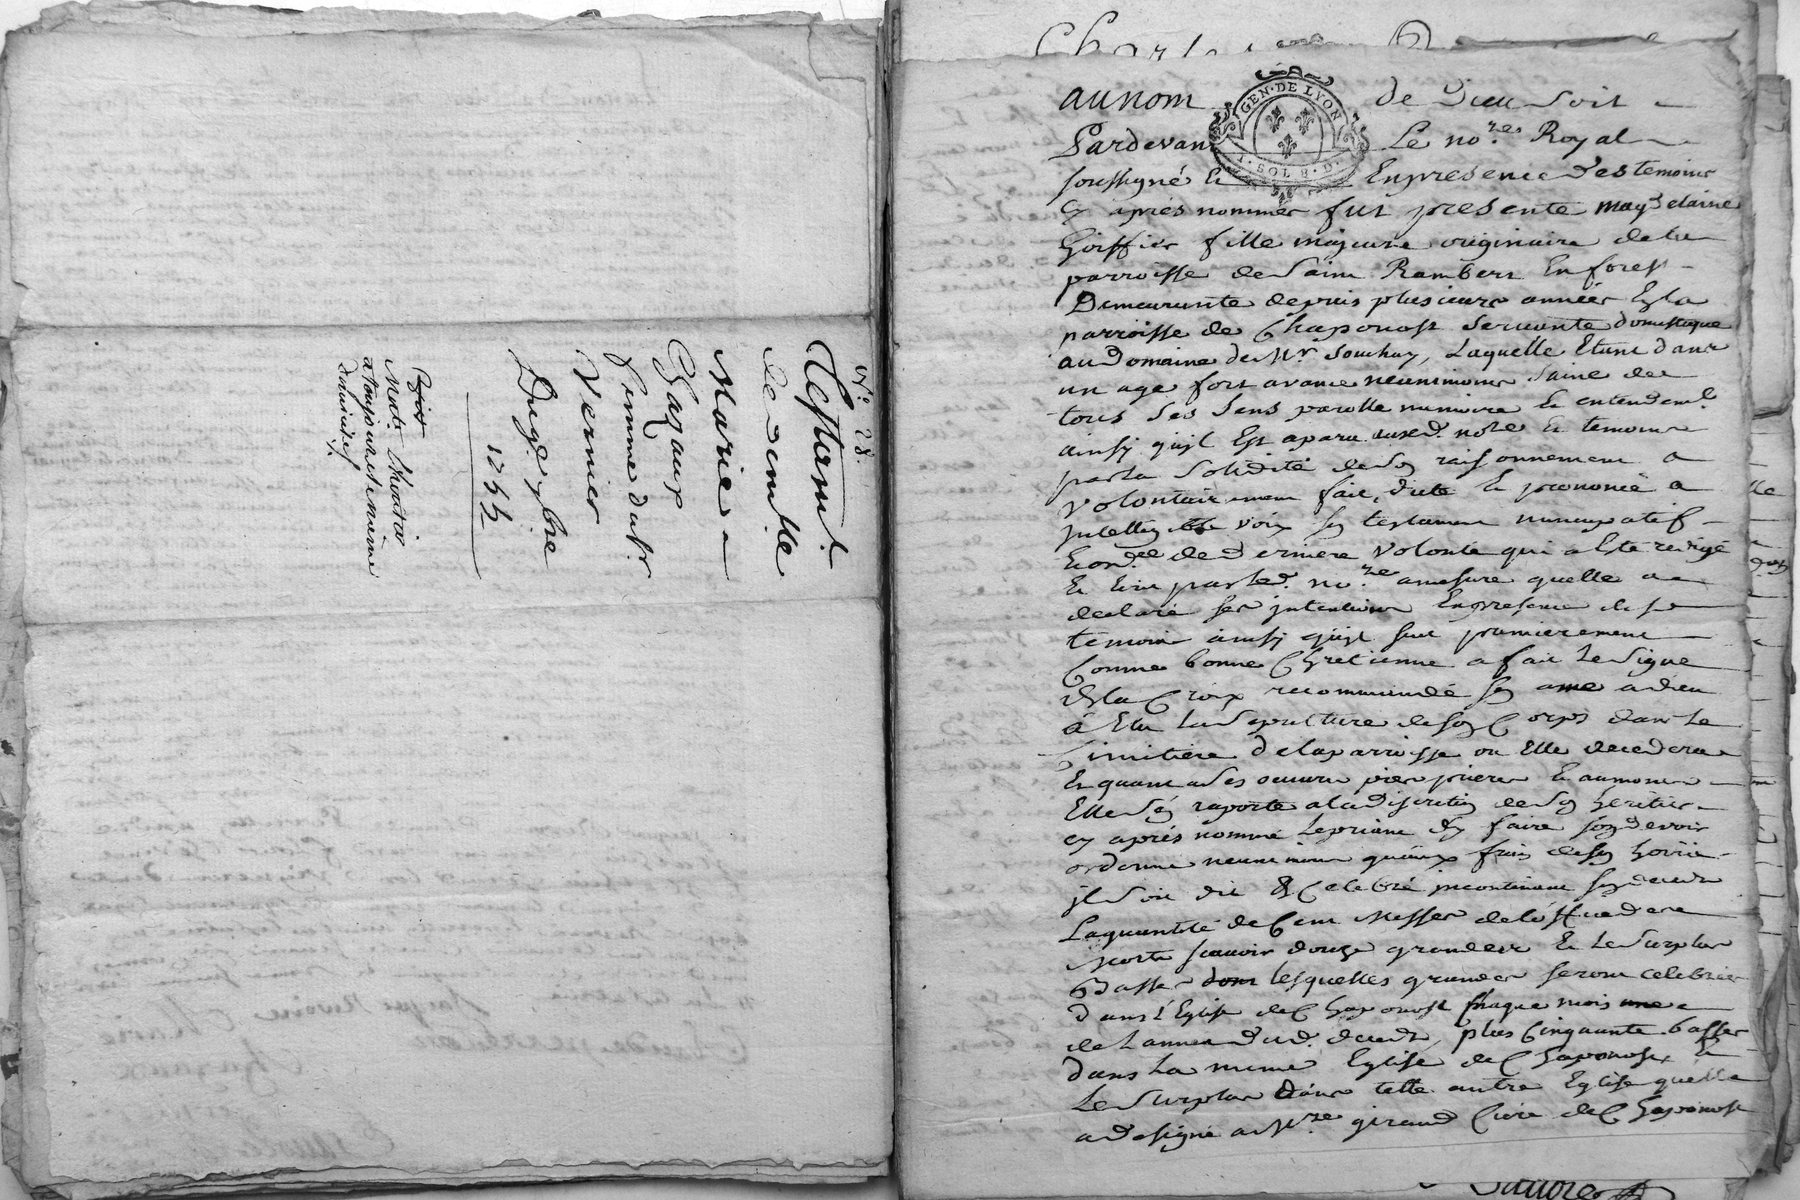 N.° 28.
Testam.t
de dm.lle
Marie
Chazaux
femme du s.r
Vernier
Du 9e 7bre
1255
au nom de Dieu soit
GEN · DE LYON
1 · SOL 8 · D ·
Pardevan Le no.re Royal
soussigné Et En presence des temoins
Cy apres nommés fut presente magdelaine
Goiffier fille majeure originaire de la
parroisse de Saint Rambert En forest
Demeurante depuis plusieurs années En la
parroisse de Chaponost servante domestique
au Domaine de Mr. Souchay, Laquelle Etant dans
un age fort avancé neanmoins Saine de
tous ses Sens parolle memoire Et entendem.t
ainsy quil Est aparu aud. no.re Et temoins
par la Solidité de Son raisonnement a
volontairement fait, dicté Et prononcé a
intelligible voix son testament nuncupatif
Et ord.ce de derniere volonté qui a Eté redigé
Et Ecrit par led. no.re amesure quelle a
declaré ses intentions En presence des
temoins ainsy quil suit premierement
Comme bonne Chretienne a fait Le Signe
de la Croix recommandé son ame a dieu
a Elu La Sepulture de son Corps dans Le
Cimitiere de la parroisse ou Elle decedera
Et quant a Ses oeuvres pies prieres Et aumones
Elle S'en raporte a la discretion de Son heritier
cy après nommé Le priant d'en faire son devoir
ordonne neanmoins qu'aux frais de son hoirie
il Soit dit & Celebré incontinent son deces
La quantité de Cent Messes de l'office des
Morts scavoir douze grandes Et Le Surplus
Basses dont lesquelles grandes seront celebrées
dans l'Eglise de Chaponost chaque mois une
de L'année dud. deces, plus Cinquante basses
dans La meme Eglise de Chaponost Et
Le Surplus dans telle autre Eglise quelle
a designé a M.re giraud Curé de Chaponost